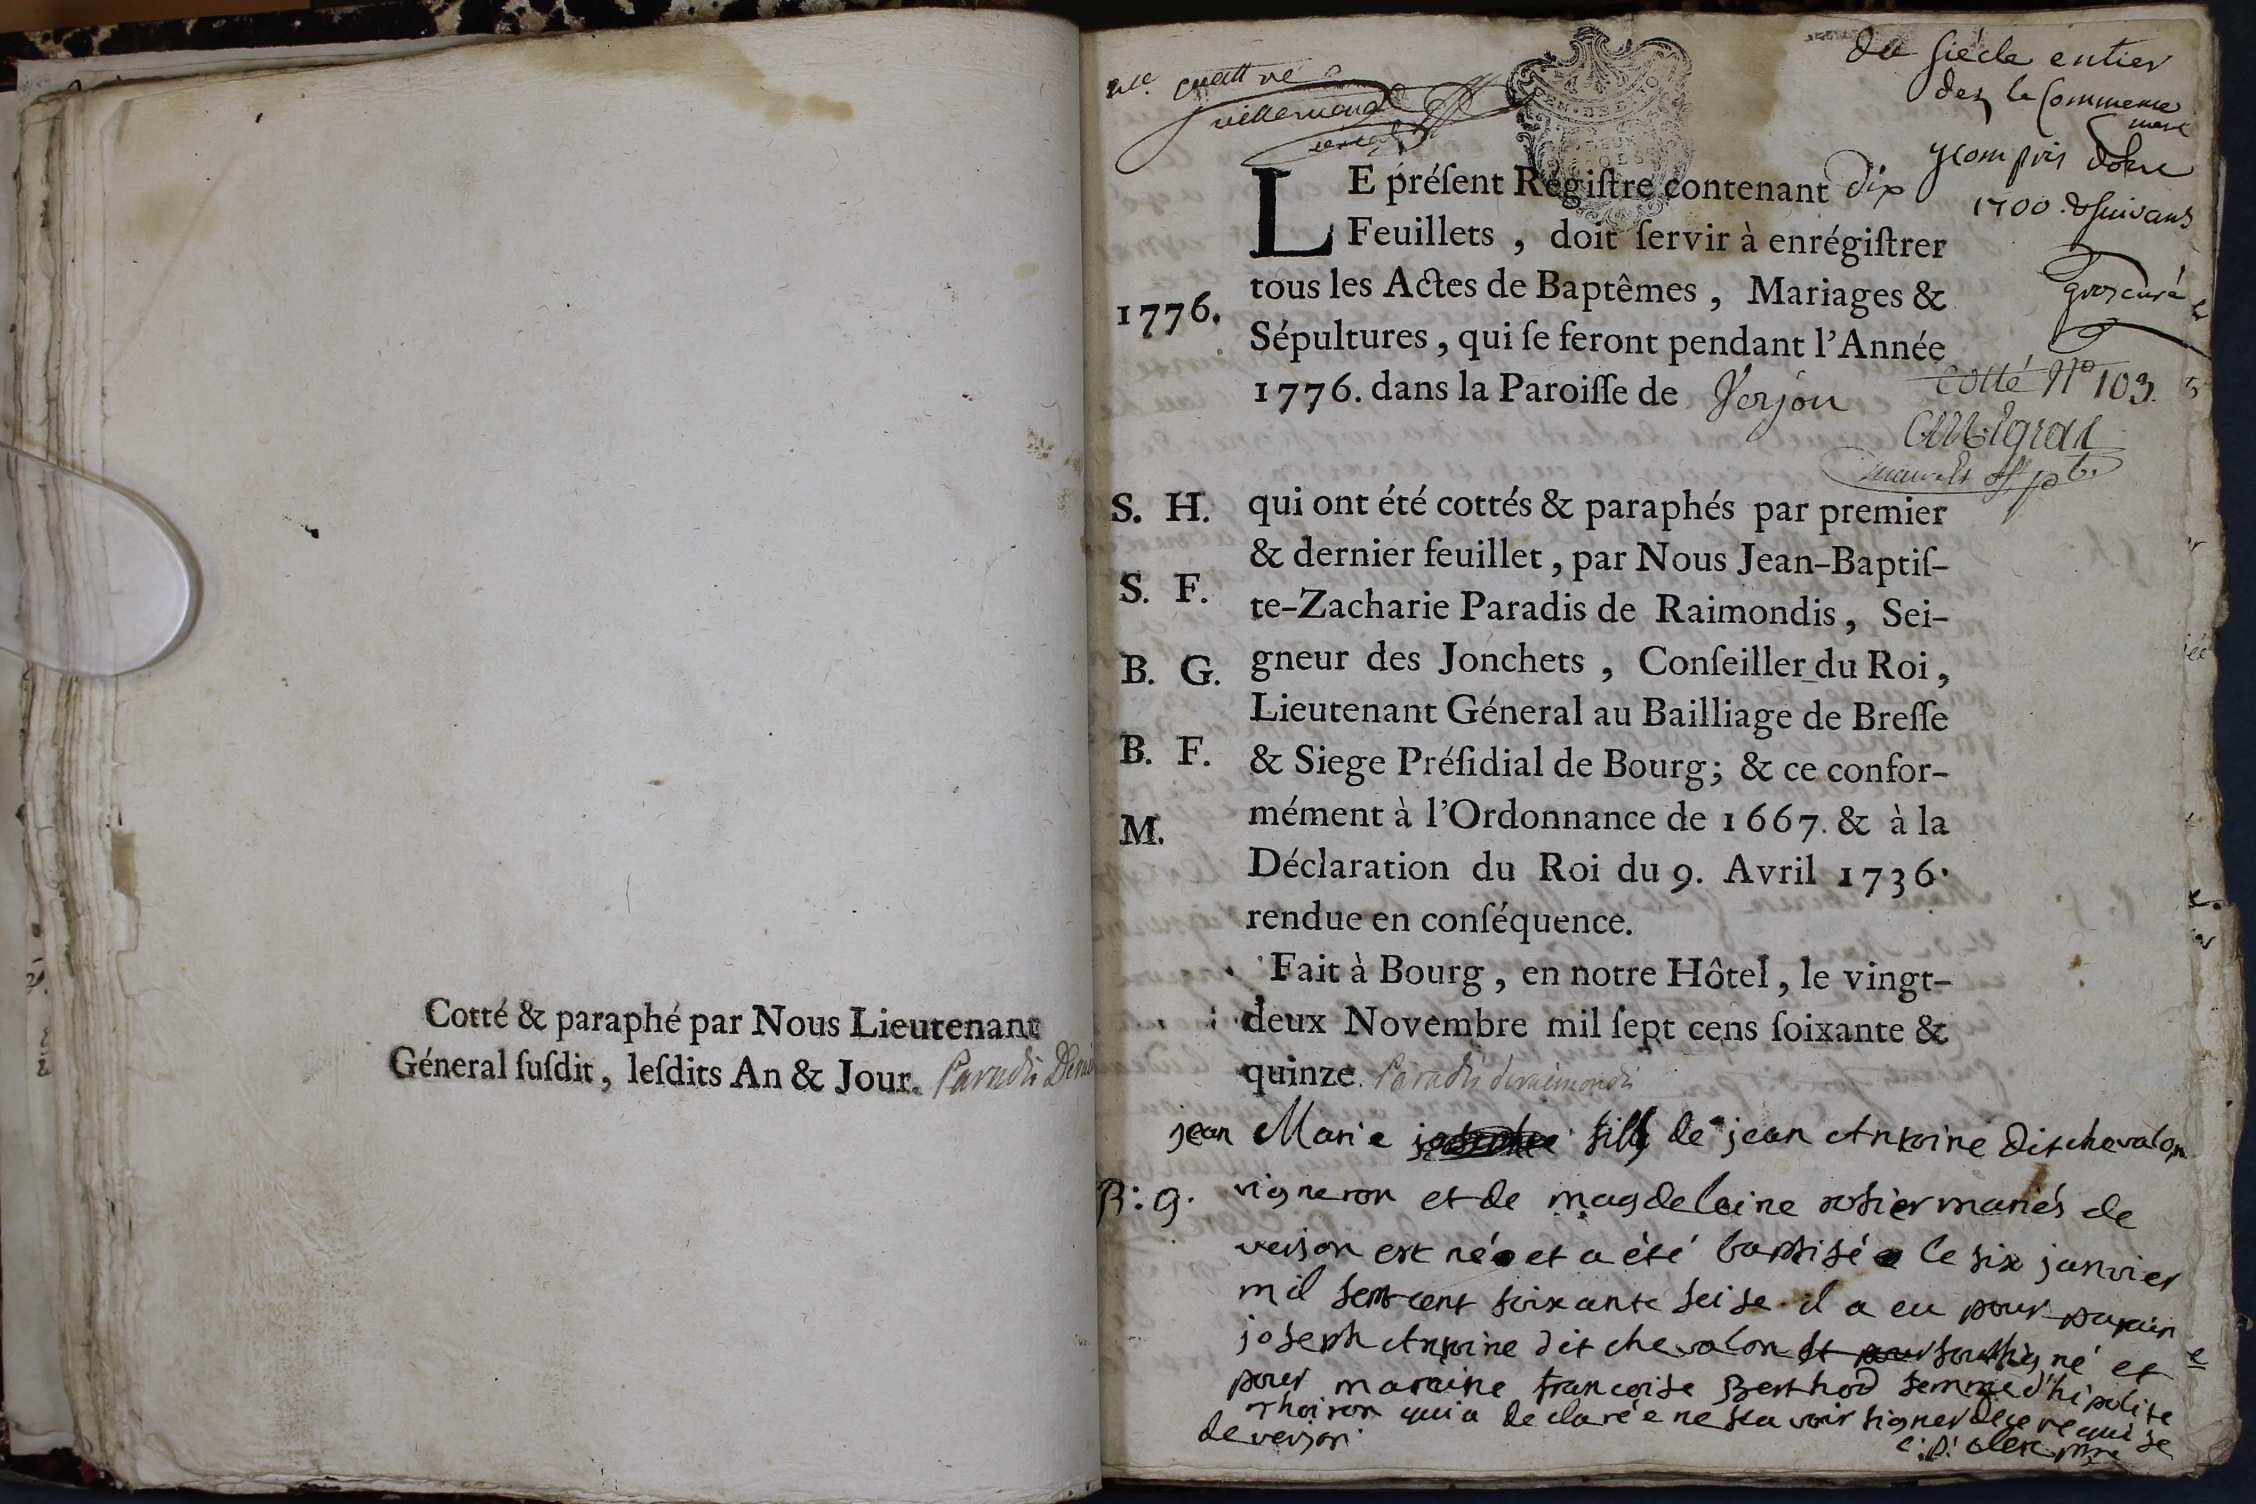 Cotté & paraphé par Nous Lieutenant
Géneral ſuſdit, leſdits An & Jour.
du siécle entier
dez le Commence
ment
y compris donc
1700. & suivans
gros curé
Cotté N° 103.
LE préſent Régiſtre contenant dix
Feuillets, doit ſervir à enrégiſtrer
tous les Actes de Baptêmes, Mariages &
1776.
Sépultures, qui ſe feront pendant l'Année
1776. dans la Paroiſſe de Verjon
S. H.
qui ont été cottés & paraphés par premier
& dernier feuillet, par Nous Jean-Baptiſ-
S. F.
te-Zacharie Paradis de Raimondis, Sei-
B. G.
gneur des Jonchets, Conſeiller du Roi,
Lieutenant Géneral au Bailliage de Breſſe
B. F.
& Siege Préſidial de Bourg; & ce confor-
M.
mément à l'Ordonnance de 1667. & à la
Déclaration du Roi du 9. Avril 1736.
rendue en conſéquence.
Fait à Bourg, en notre Hôtel, le vingt-
deux Novembre mil ſept cens ſoixante &
quinze. Paradis deraimondis
jean Marie fils de jean Antoine dit chevalon
B: g.
vigneron et de magdelaine rosier mariés de
verjon est né et a été baptisé le six janvier
mil sept cent soixante seise il a eu pour parain
joseph Antoine dit chevalon et pour soussigné et
pour maraine francoise Berthod femme d'hipolite
thoiron qui a declarée ne scavoir signer de ce requise
de verjon